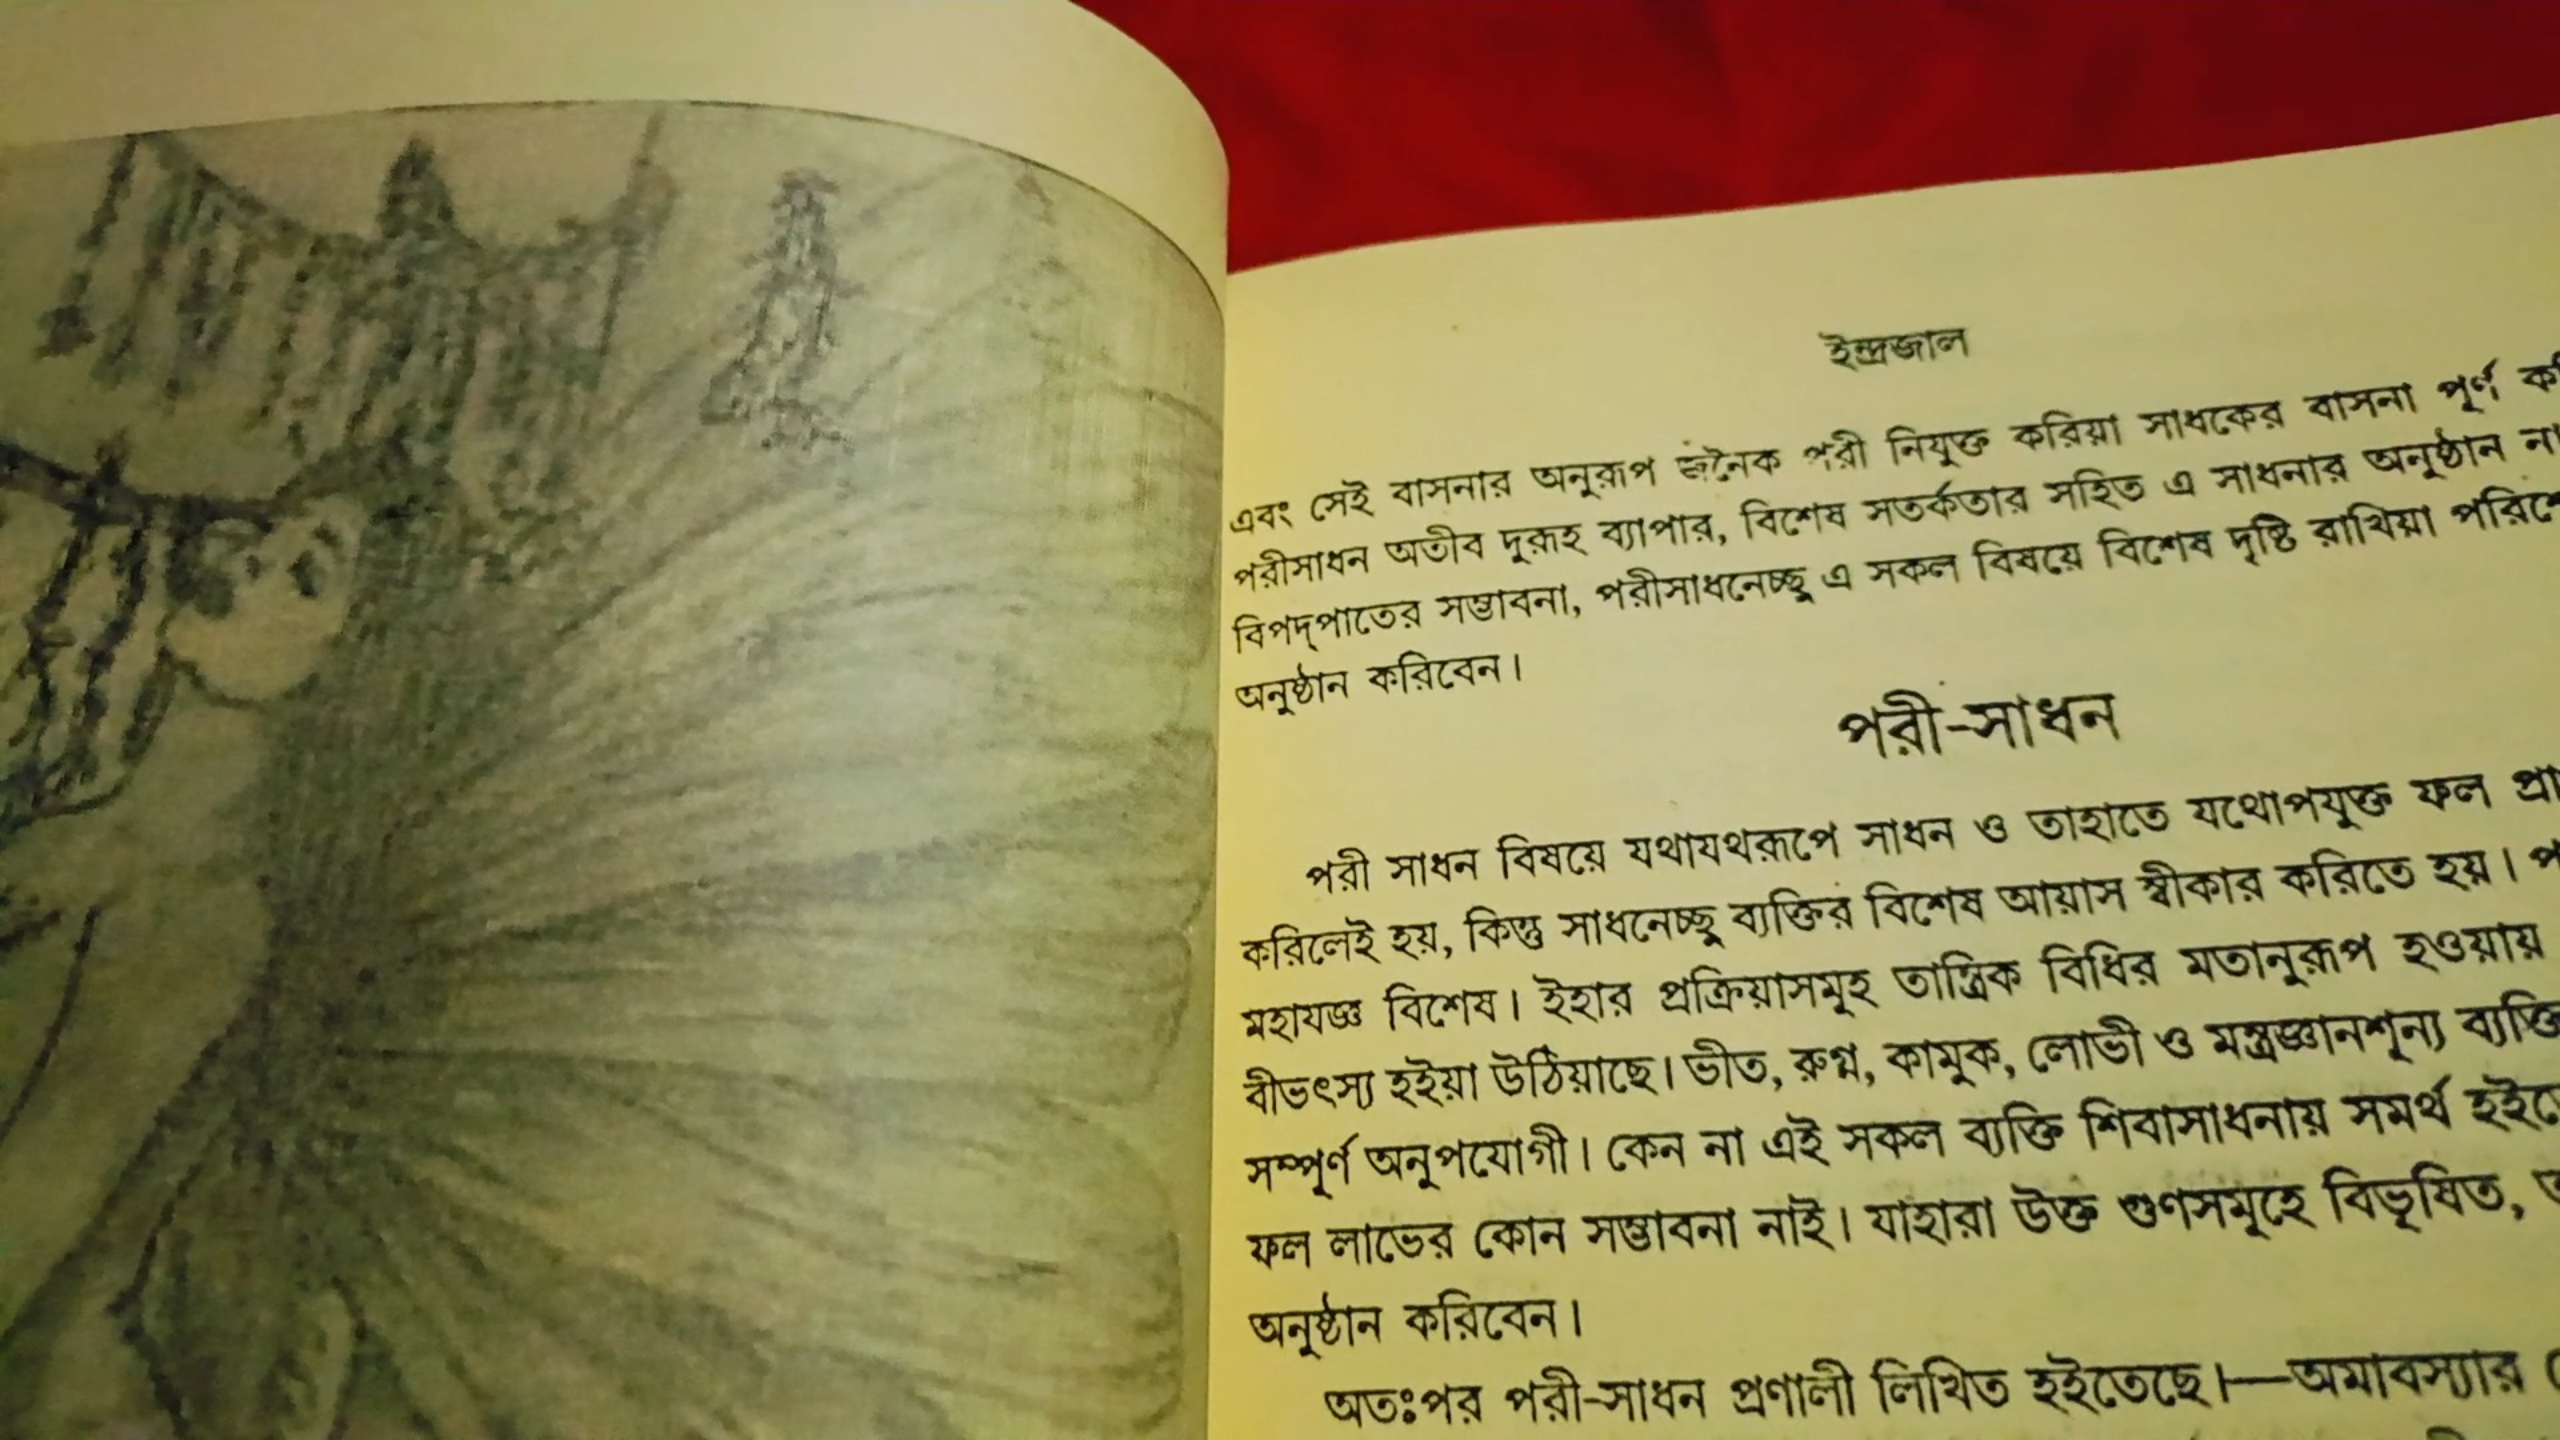 ইন্দ্রজাল
এবং সেই বাসনার অনুরূপ জনৈক পরী নিযুক্ত করিয়া সাধকের বাসনা পূর্ণ
পরীসাধন অতীব দুরূহ ব্যাপার, বিশেষ সতর্কতার সহিত এ সাধনার অনুষ্ঠান
বিপদ্‌পাতের সম্ভাবনা, পরীসাধনেচ্ছু এ সকল বিষয়ে বিশেষ দৃষ্টি রাখিয়া
অনুষ্ঠান করিবেন।
পরী-সাধন
পরী সাধন বিষয়ে যথাযথরূপে সাধন ও তাহাতে যথোপযুক্ত ফল
করিলেই হয়, কিন্তু সাধনেচ্ছু ব্যক্তির বিশেষ আয়াস স্বীকার করিতে হয়।
মহাযজ্ঞ বিশেষ। ইহার প্রক্রিয়াসমূহ তান্ত্রিক বিধির মতানুরূপ হওয়ায়
বীভৎস্য হইয়া উঠিয়াছে। ভীত, রুগ্ন, কামুক, লোভী ও মন্ত্রজ্ঞানশূন্য
সম্পূর্ণ অনুপযোগী। কেন না এই সকল ব্যক্তি শিবাসাধনায় সমর্থ
ফল লাভের কোন সম্ভাবনা নাই। যাহারা উক্ত গুণসমূহে বিভূষিত,
অনুষ্ঠান করিবেন।
অতঃপর পরী-সাধন প্রণালী লিখিত হইতেছে।—অমাবস্যার